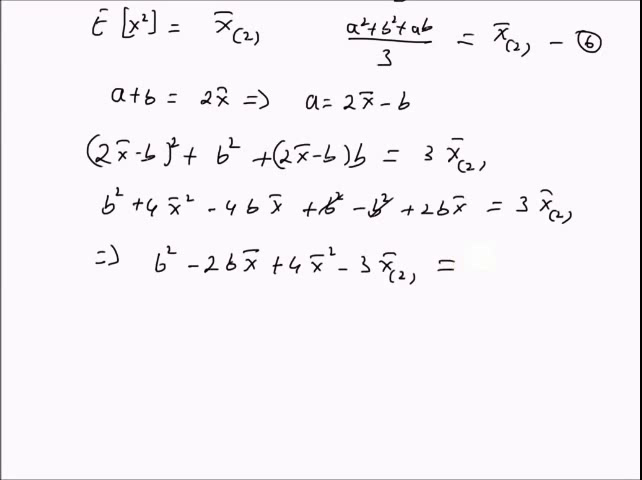 E [x²] = x̄₍₂₎    (a²+b²+ab)/3 = x̄₍₂₎ - ⑥
a+b = 2x̄ => a = 2x̄ - b
(2x̄-b)² + b² + (2x̄-b)b = 3 x̄₍₂₎
b² + 4x̄² - 4bx̄ + b² - b² + 2bx̄ = 3 x̄₍₂₎
=> b² - 2bx̄ + 4x̄² - 3x̄₍₂₎ =